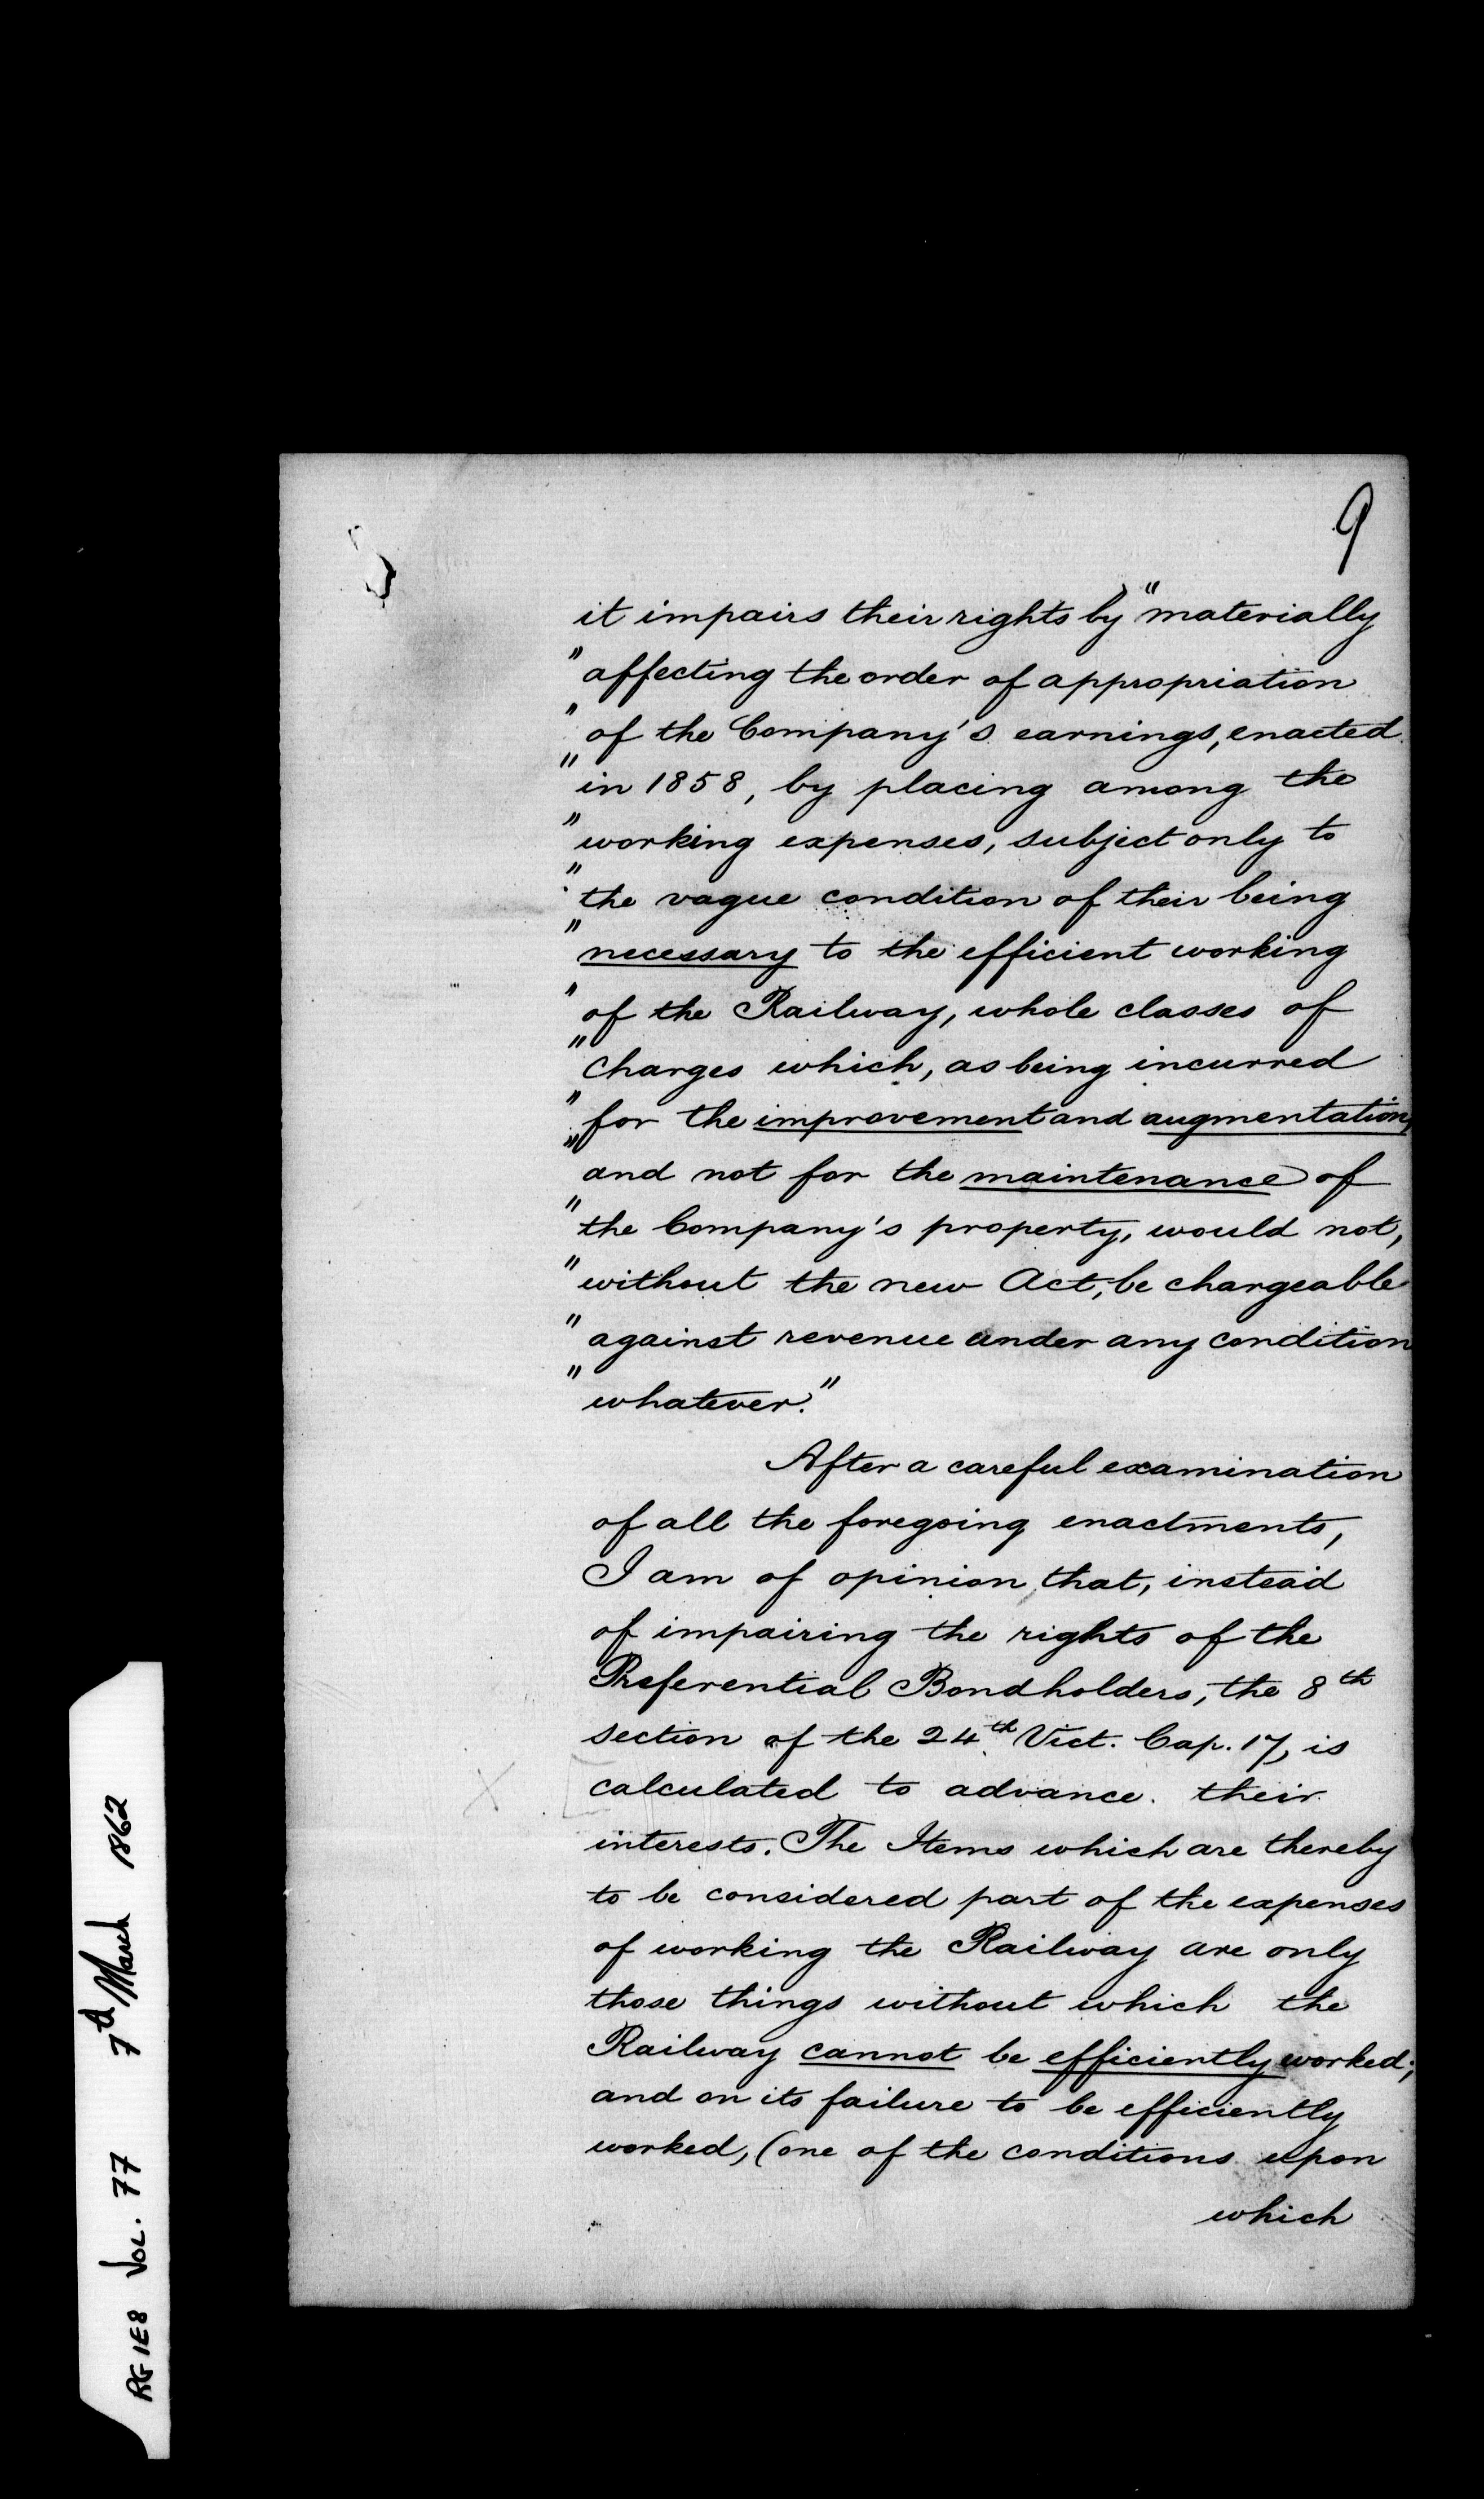 9
it impairs their rights by "materially
" affecting the order of appropriation
" of the Company's earnings, enacted
" in 1858, by placing among the
" working expenses, subject only to
" the vague condition of their being
" necessary to the efficient working
" of the Railway, whole classes of
" charges which, as being incurred
" for the improvement and augmentation,
" and not for the maintenance of
" the Company's property, would not,
" without the new Act, be chargeable
" against revenue under any condition
" whatever."
After a careful examination
of all the foregoing enactments,
I am of opinion that, instead
of impairing the rights of the
Preferential Bondholders, the 8th
section of the 24th Vict. Cap. 17, is
calculated to advance their
interests. The Items which are thereby
to be considered part of the expenses
of working the Railway are only
those things without which the
Railway cannot be efficiently worked;
and on its failure to be efficiently
worked, (one of the conditions upon
which
RG 1E8 VOL. 77 7th March 1862